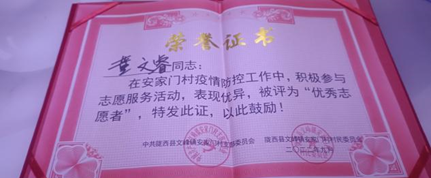 荣誉证书
董文睿同志：
在安家门村疫情防控工作中，积极参与
志愿服务活动，表现优异，被评为“优秀志
愿者”，特发此证，以此鼓励！
中共陇西县文峰镇安家门村支部委员会 陇西县文峰镇安家门村村民委员会
二〇二二年九月